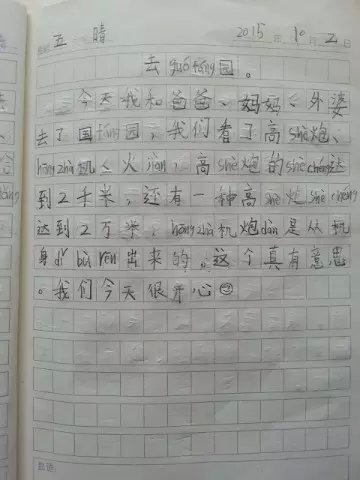 五 晴 2015年10月2日
去guó fáng园。
今天我和爸爸、妈妈、外婆
去了国fáng园，我们看了高shè炮、
hōng zhà机、火jiàn，高shè炮的shè chéng达
到2千米，还有一种高shè炮shè chéng
达到2万米，hōng zhà机炮dàn是从机
身dǐ bù rēng出来的，这个真有意思
。我们今天很开心